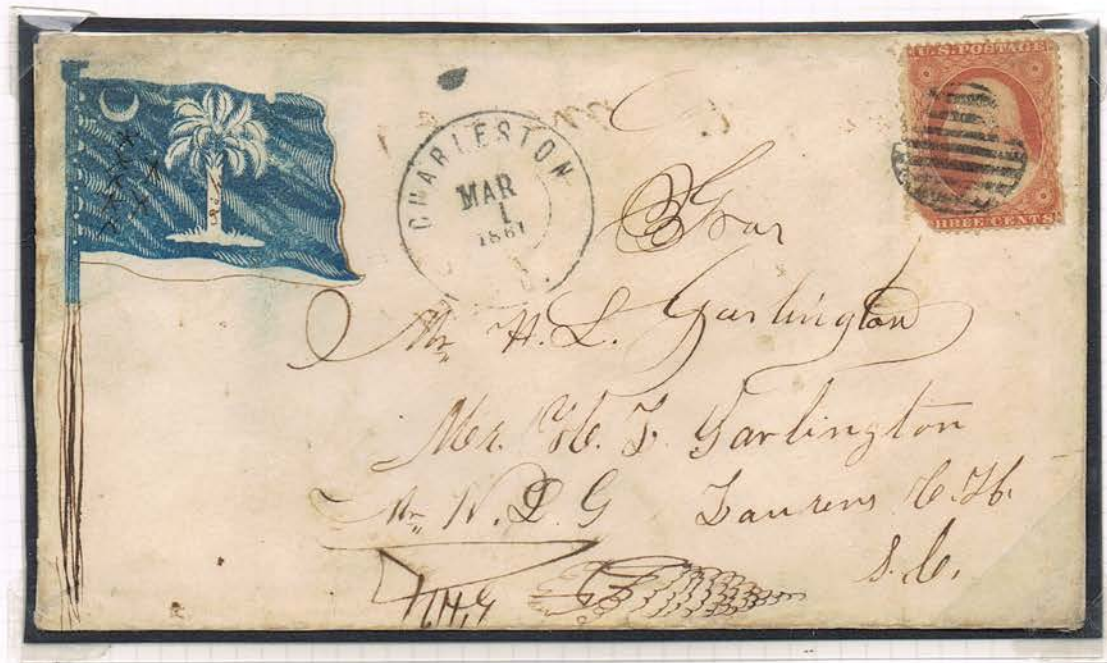 U.S. POSTAGE
THREE CENTS
CHARLESTON
MAR
1
1861
Mr. H. L. Garlington
Mr. H. L. Garlington
Mr. N. L. G Laurens C. H.
S. C.